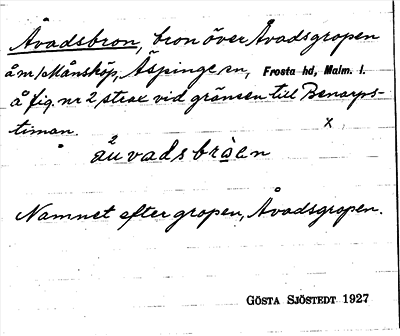 Åvadsbron, bron över Åvadsgropen
å nr 1 Månsköp, Äspinge sn, Frosta hd, Malm. l.
å fig. nr 2, strax vid gränsen till Benarps-
timan. x
åuvadsbråen
Namnet efter gropen, Åvadsgropen.
GÖSTA SJÖSTEDT 1927